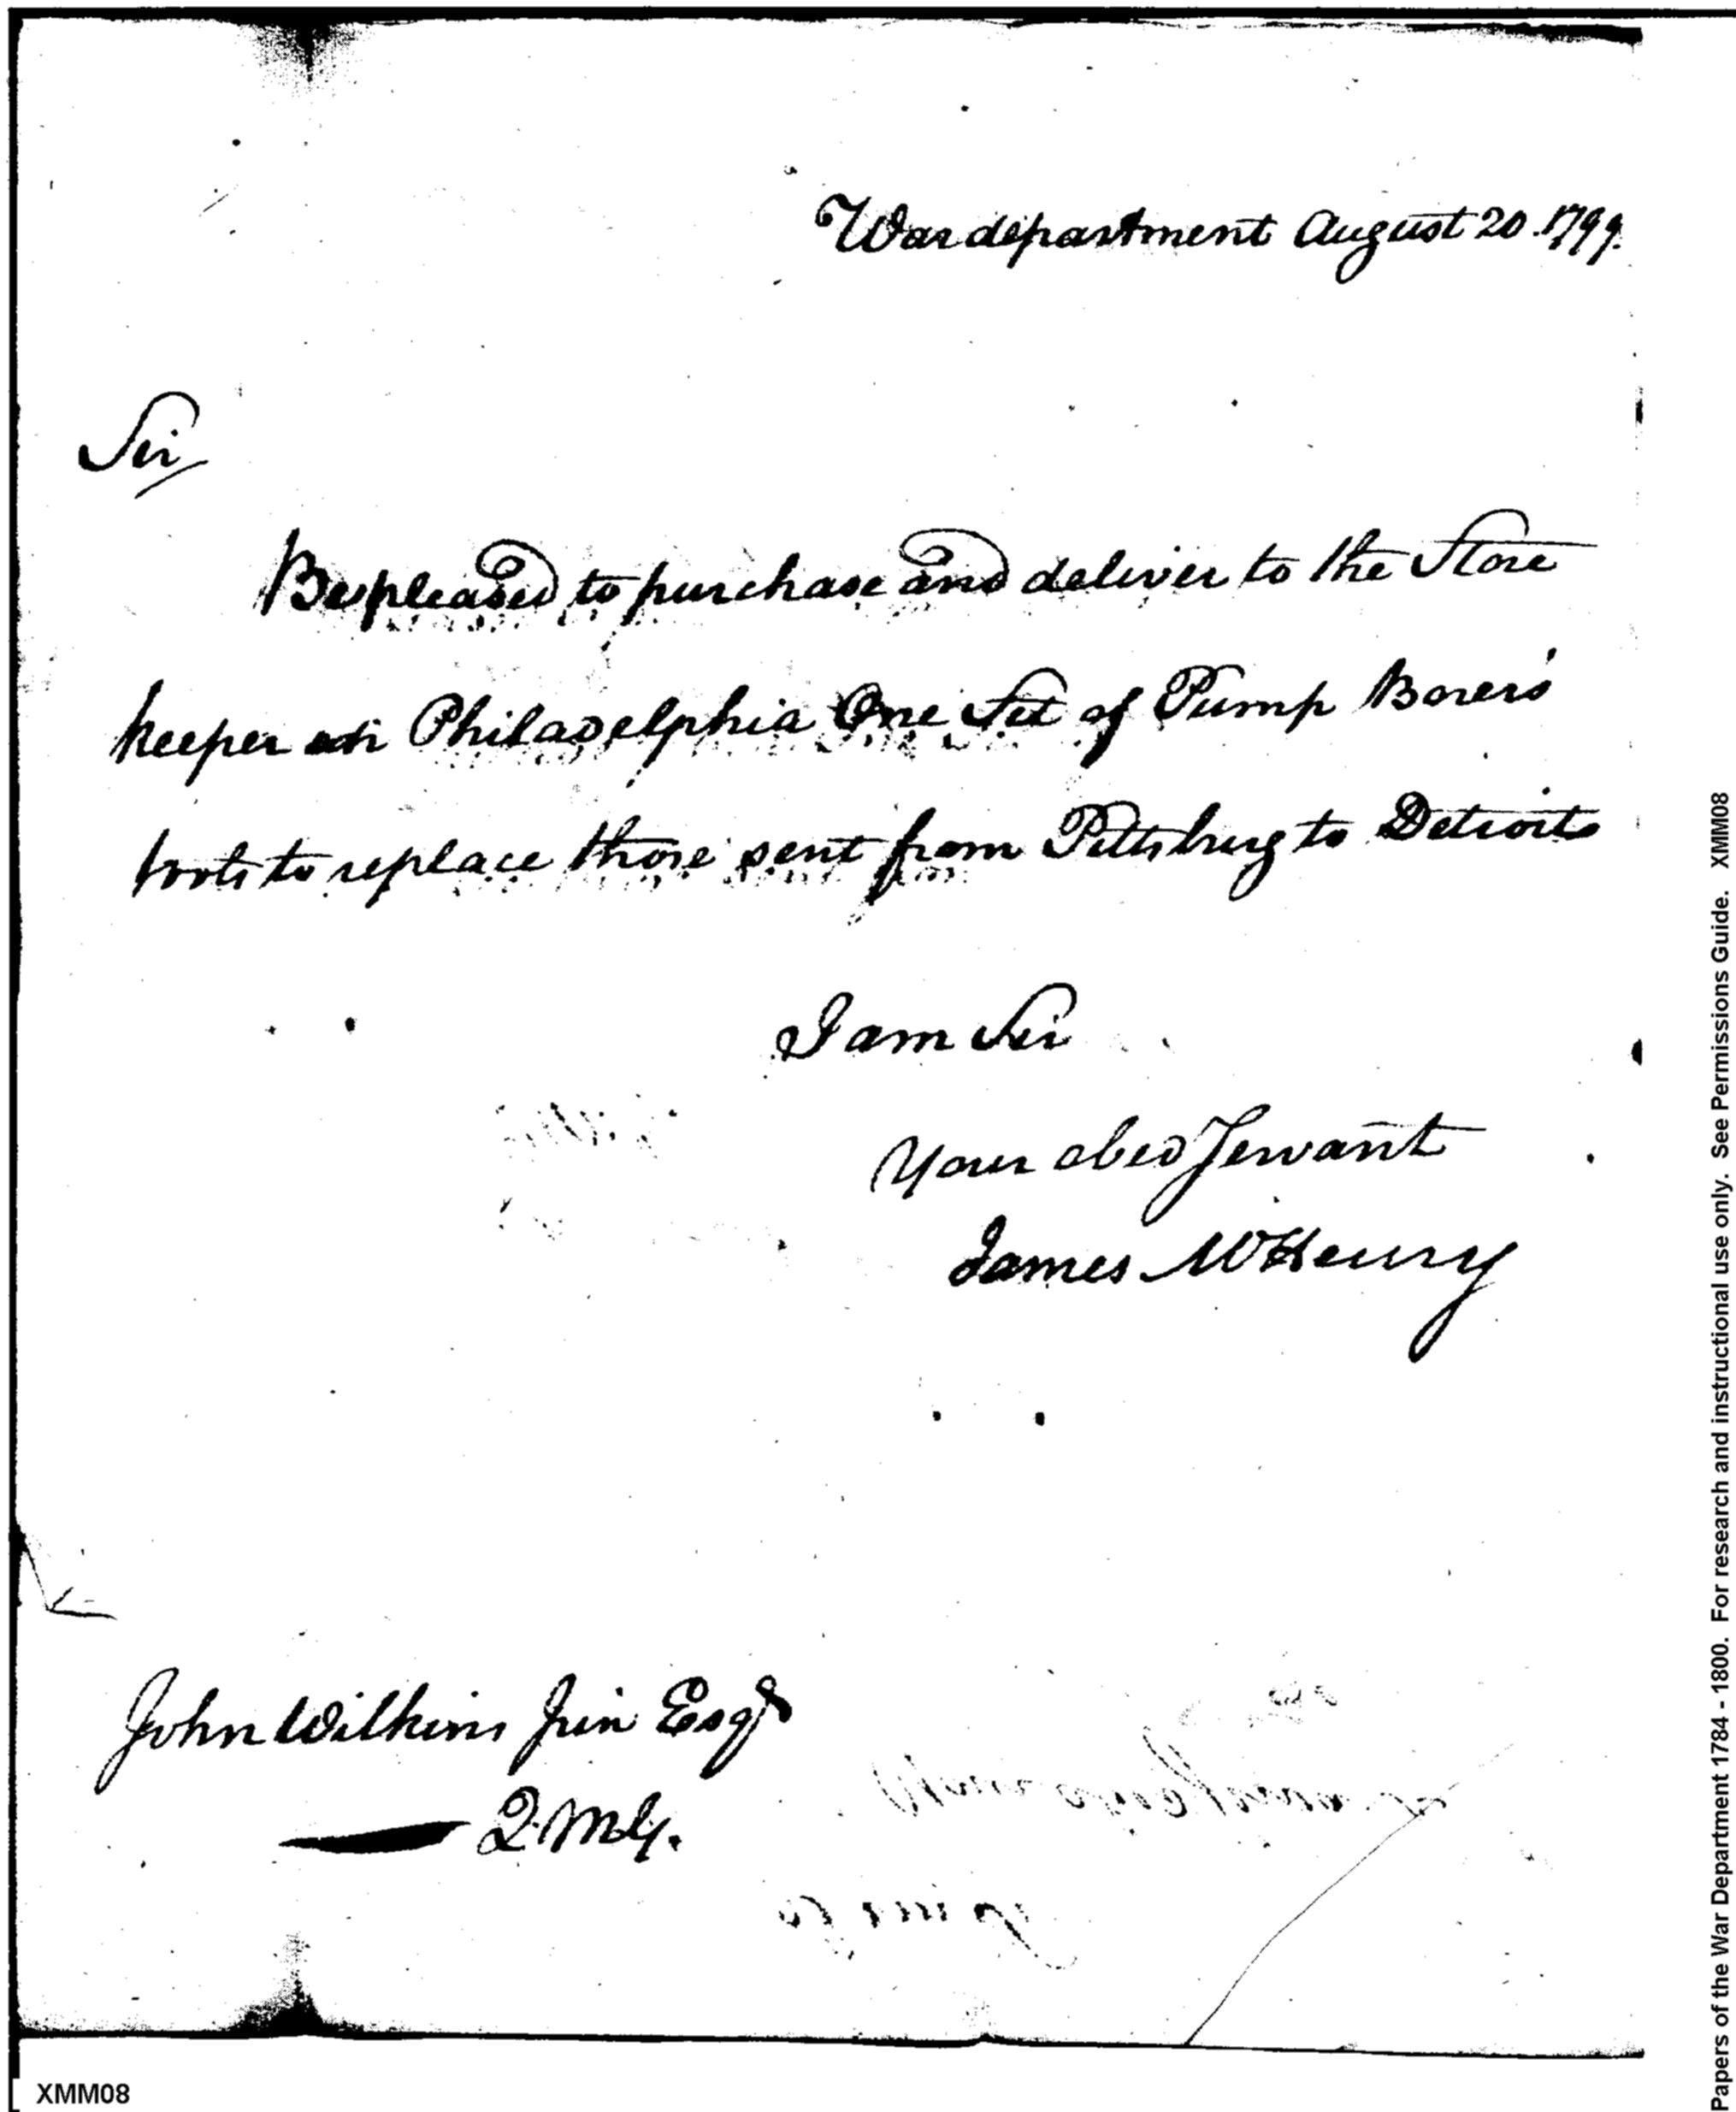 War department August 20. 1799.
Sir
Be pleased to purchase and deliver to the Store
keeper in Philadelphia One Set of Pump Borers
tools to replace those sent from Pittsburg to Detroit
I am Sir
Your obed Servant
James McHenry
John Wilkins Jun Esqr
Q.M.G.
XMM08
Papers of the War Department 1784 - 1800. For research and instructional use only. See Permissions Guide. XMM08